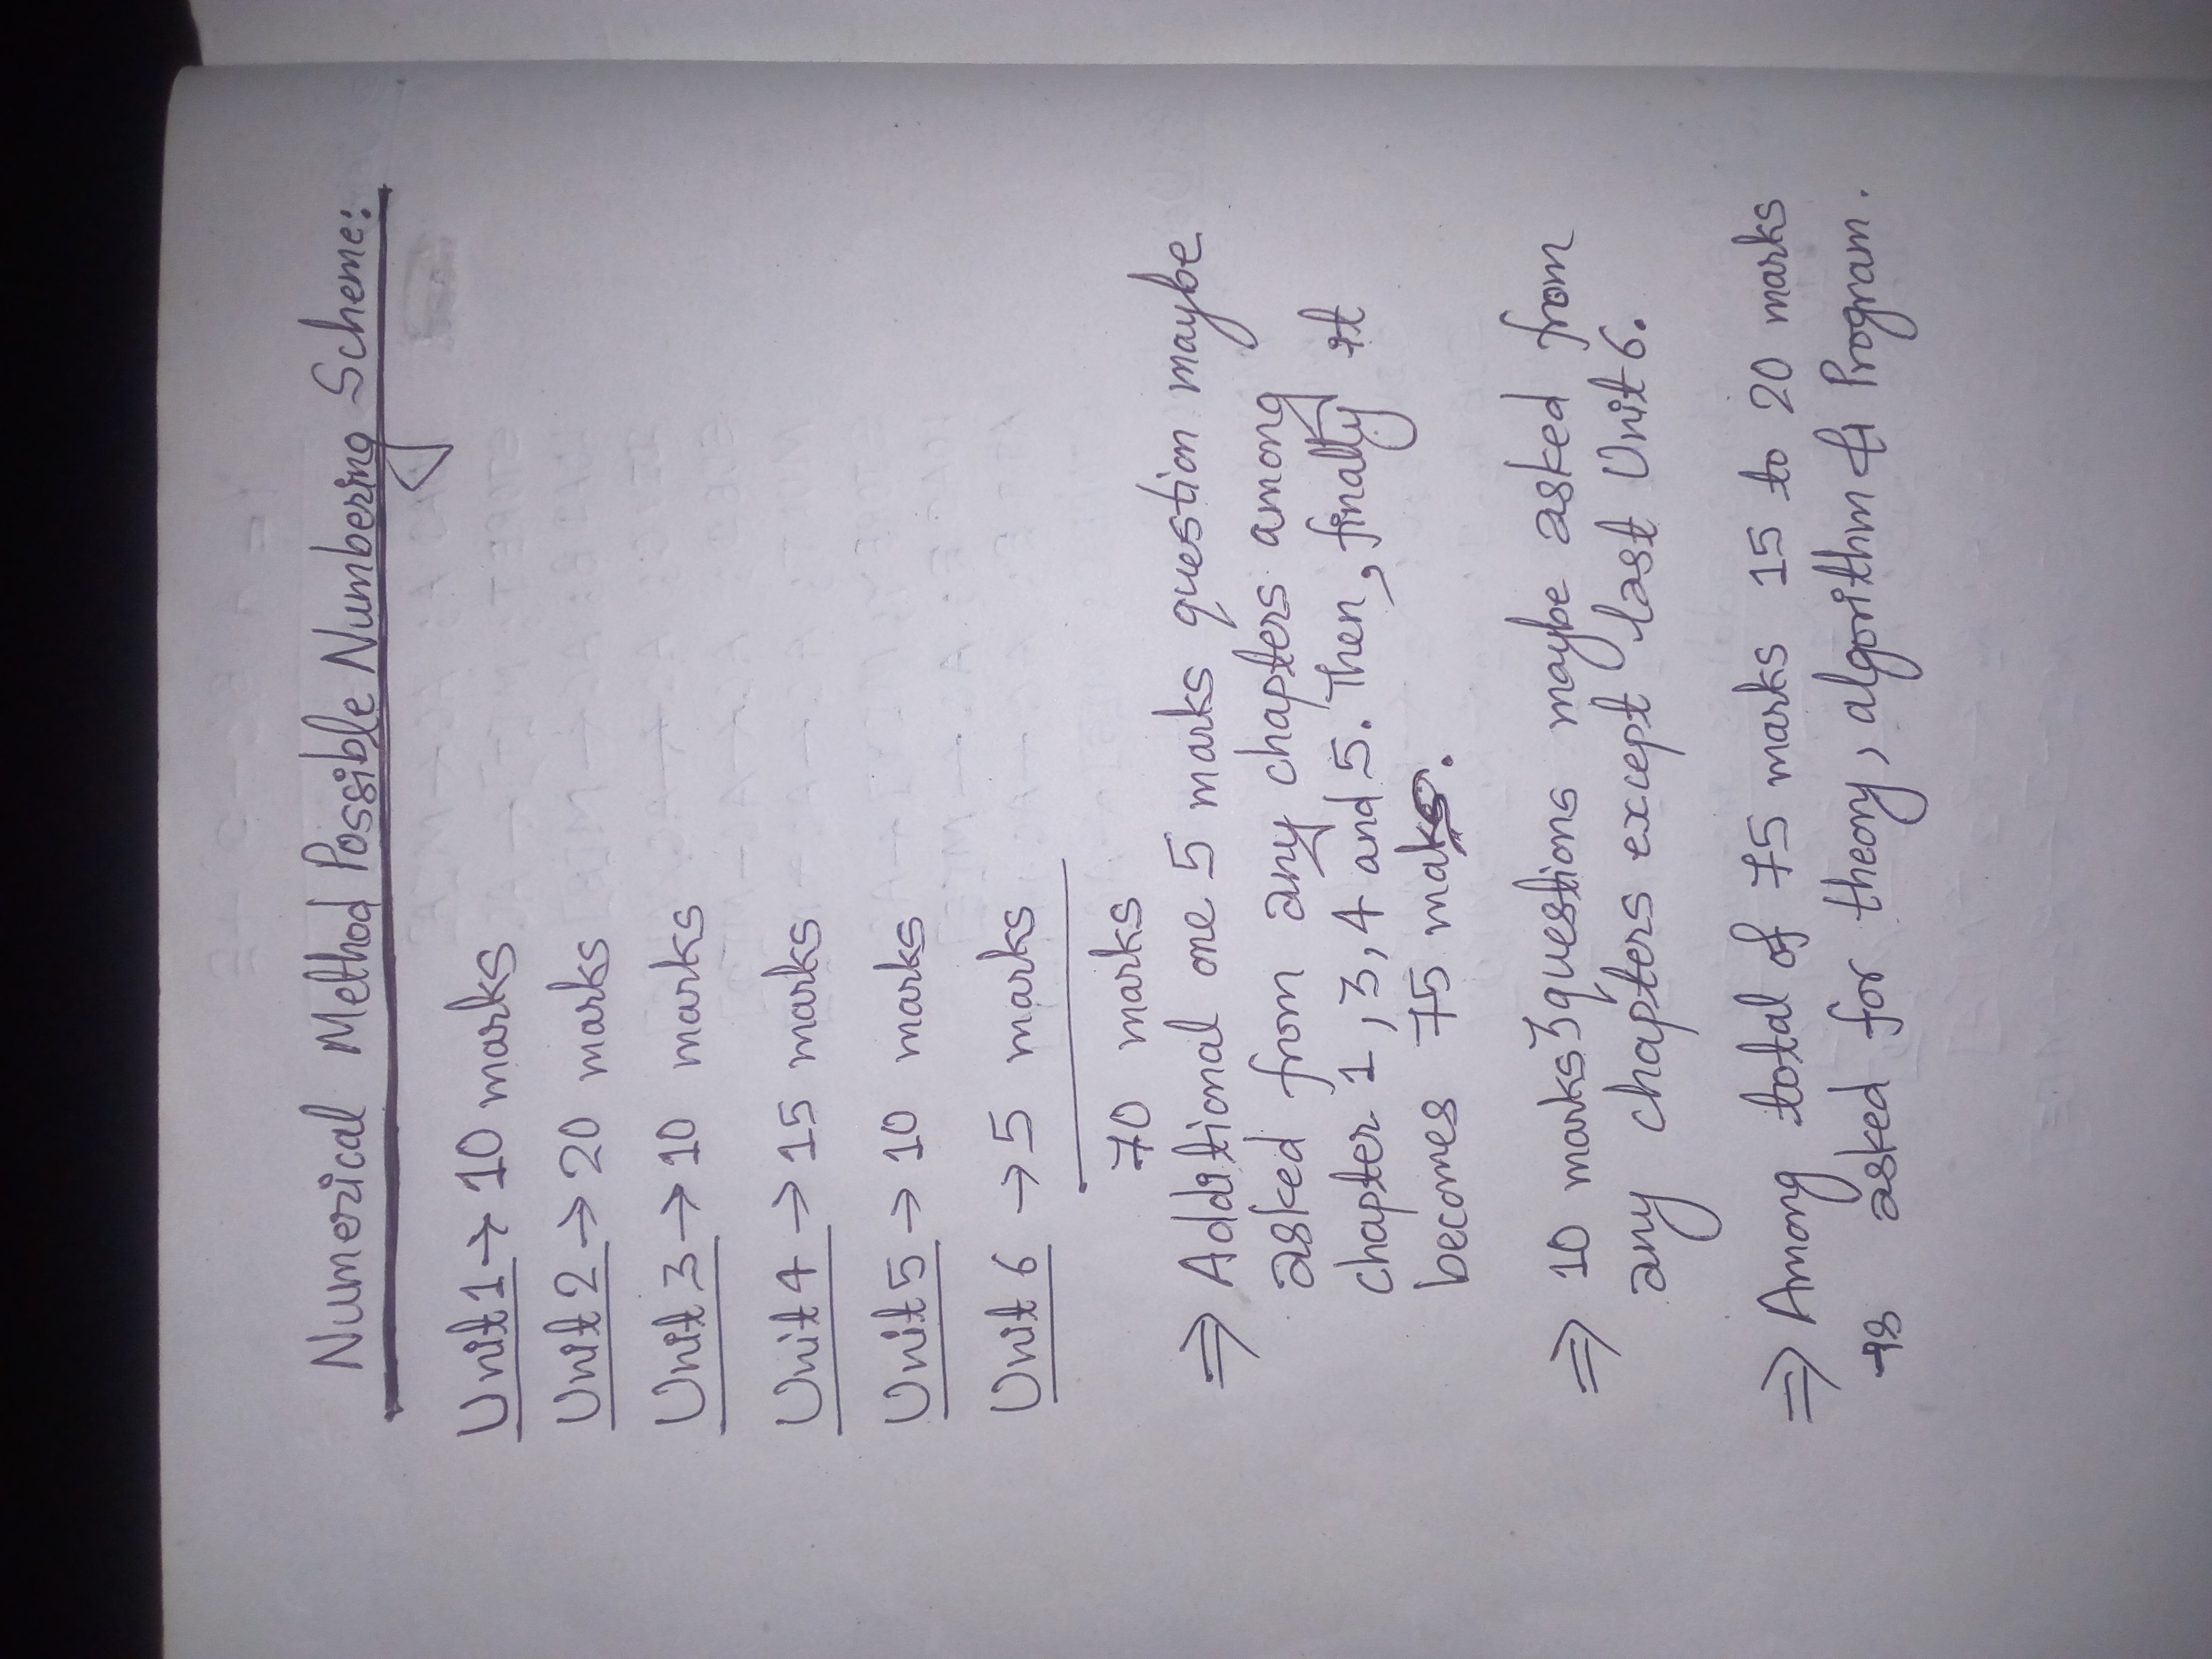 Numerical Method Possible Numbering Scheme:
Unit 1 → 10 marks
Unit 2 → 20 marks
Unit 3 → 10 marks
Unit 4 → 15 marks
Unit 5 → 10 marks
Unit 6 → 5 marks
70 marks
⇒ Additional one 5 marks question maybe
asked from any chapters among
chapter 1, 3, 4 and 5. Then, finally it
becomes 75 maks.
⇒ 10 marks 3 questions maybe asked from
any chapters except last Unit 6.
⇒ Among total of 75 marks 15 to 20 marks
is asked for theory, algorithm & Program.